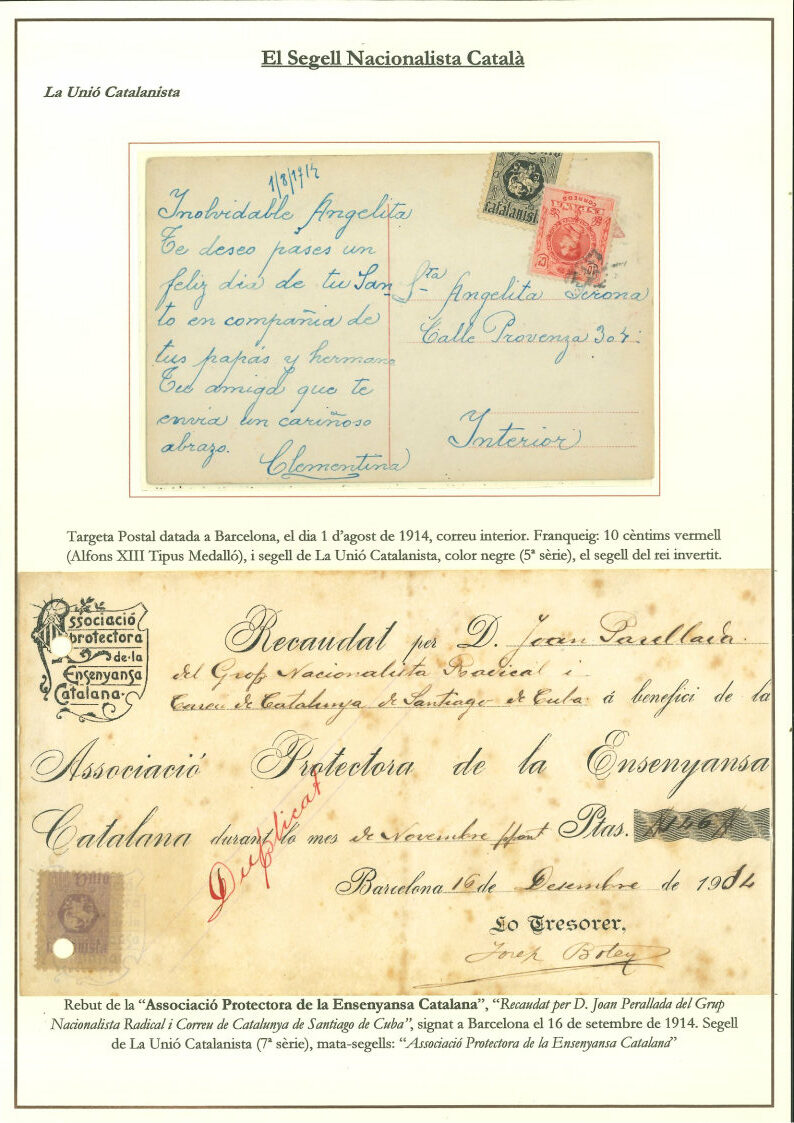 El Segell Nacionalista Català
La Unió Catalanista
1/8/1914
Inolvidable Angelita
Te deseo pases un
feliz dia de tu San-
to en compañia de
tus papás y hermano
Tu amiga que te
envia un cariñoso
abrazo.
Clementina
catalanist
CORREOS
Sta Angelita Serona
Calle Provenza 304:
Interior
Targeta Postal datada a Barcelona, el dia 1 d'agost de 1914, correu interior. Franqueig: 10 cèntims vermell
(Alfons XIII Tipus Medalló), i segell de La Unió Catalanista, color negre (5ª sèrie), el segell del rei invertit.
Associació
protectora
de·la
Ensenyansa
Catalana·
Recaudat per D. Joan Parellada
del Grop Nacionalista Radical i
Correu de Catalunya de Santiago de Cuba á benefici de la
Associació Protectora de la Ensenyansa
Catalana durant lo mes de Novembre ppant Ptas.
Duplicat
Barcelona 16 de Desembre de 1914
Lo Tresorer,
Josep Boley
Unió
Rebut de la "Associació Protectora de la Ensenyansa Catalana", "Recaudat per D. Joan Perallada del Grup
Nacionalista Radical i Correu de Catalunya de Santiago de Cuba", signat a Barcelona el 16 de setembre de 1914. Segell
de La Unió Catalanista (7ª sèrie), mata-segells: "Associació Protectora de la Ensenyansa Catalana"